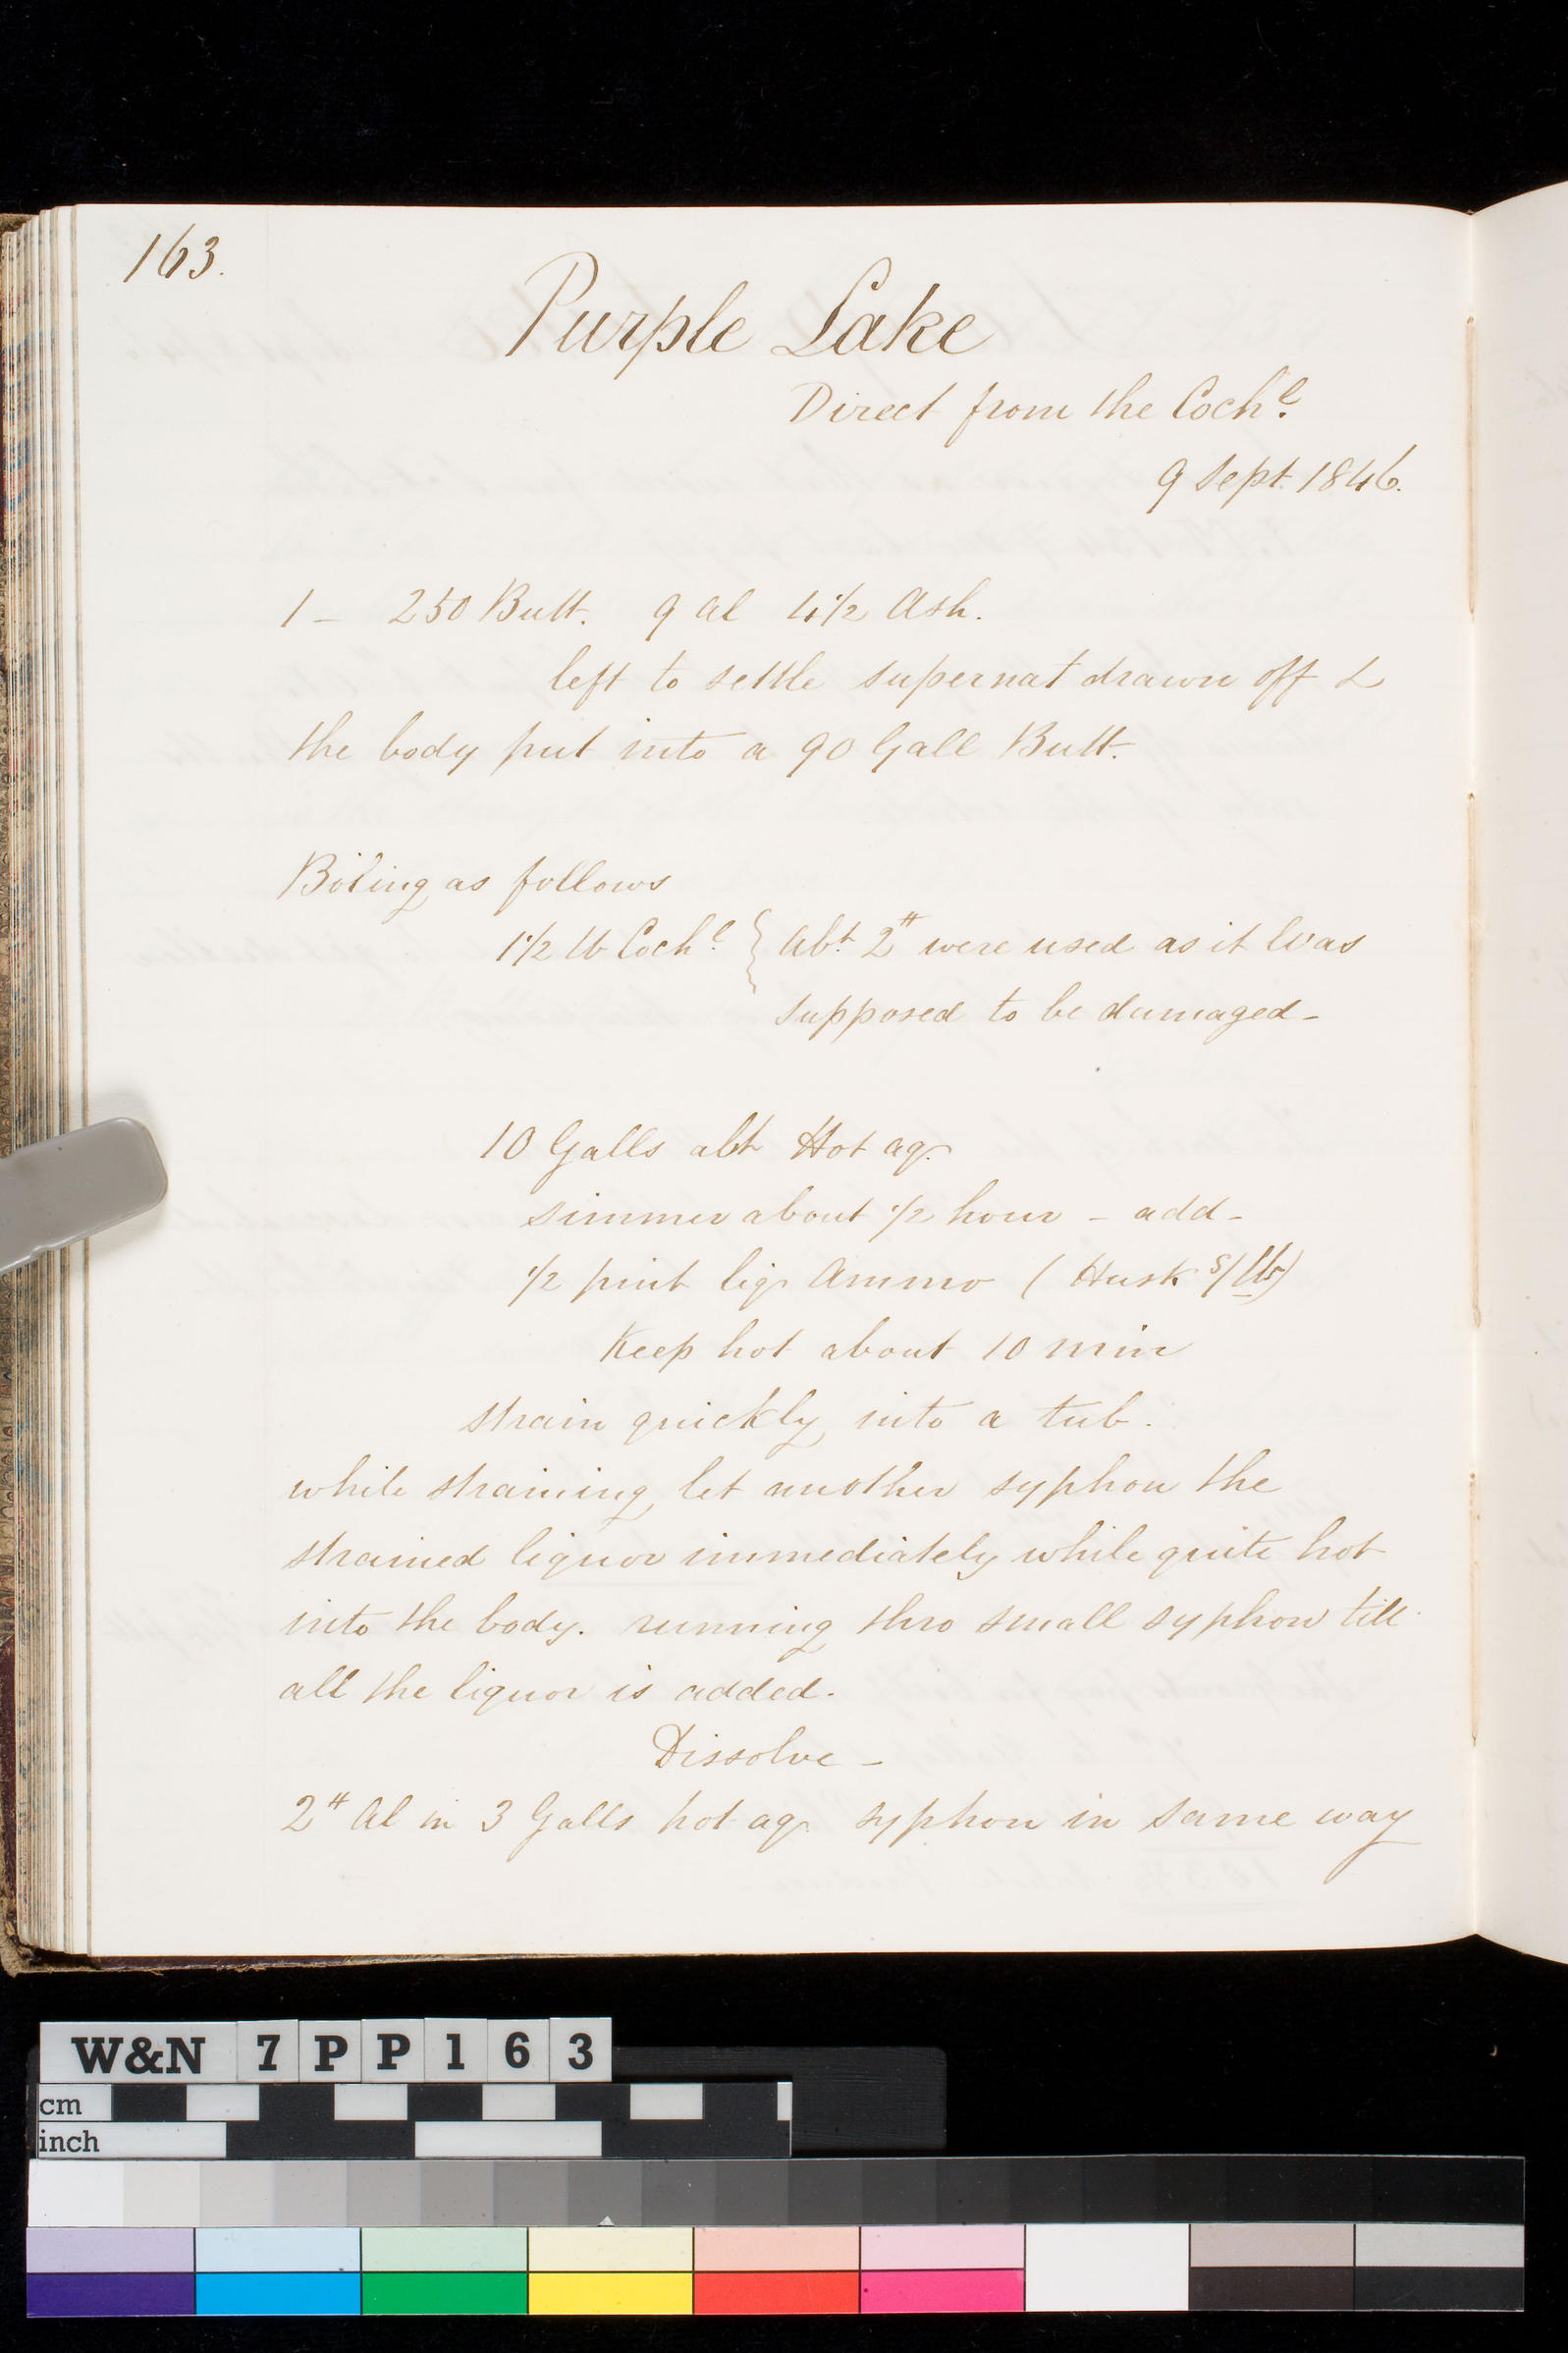 163.
Purple Lake
Direct from the Cochl.
9 Sept. 1846.
1 - 250 Butt. 9 al 4 1/2 Ash.
left to settle supernat drawn off &
the body put into a 90 Gall Butt.
Boiling as follows
1 1/2 lb Cochl. } Abt. 2# were used as it was
supposed to be damaged -
10 Galls abt Hot aq.
simmer about 1/2 hour - add -
1/2 pint liq. Ammo ( Husk s/ lb)
Keep hot about 10 min
strain quickly into a tub.
while straining let another syphon the
strained liquor immediately while quite hot
into the body. running thro small syphon till
all the liquor is added.
Dissolve -
2# Al in 3 Galls hot aq. syphon in same way
W&N 7PP163
cm
inch